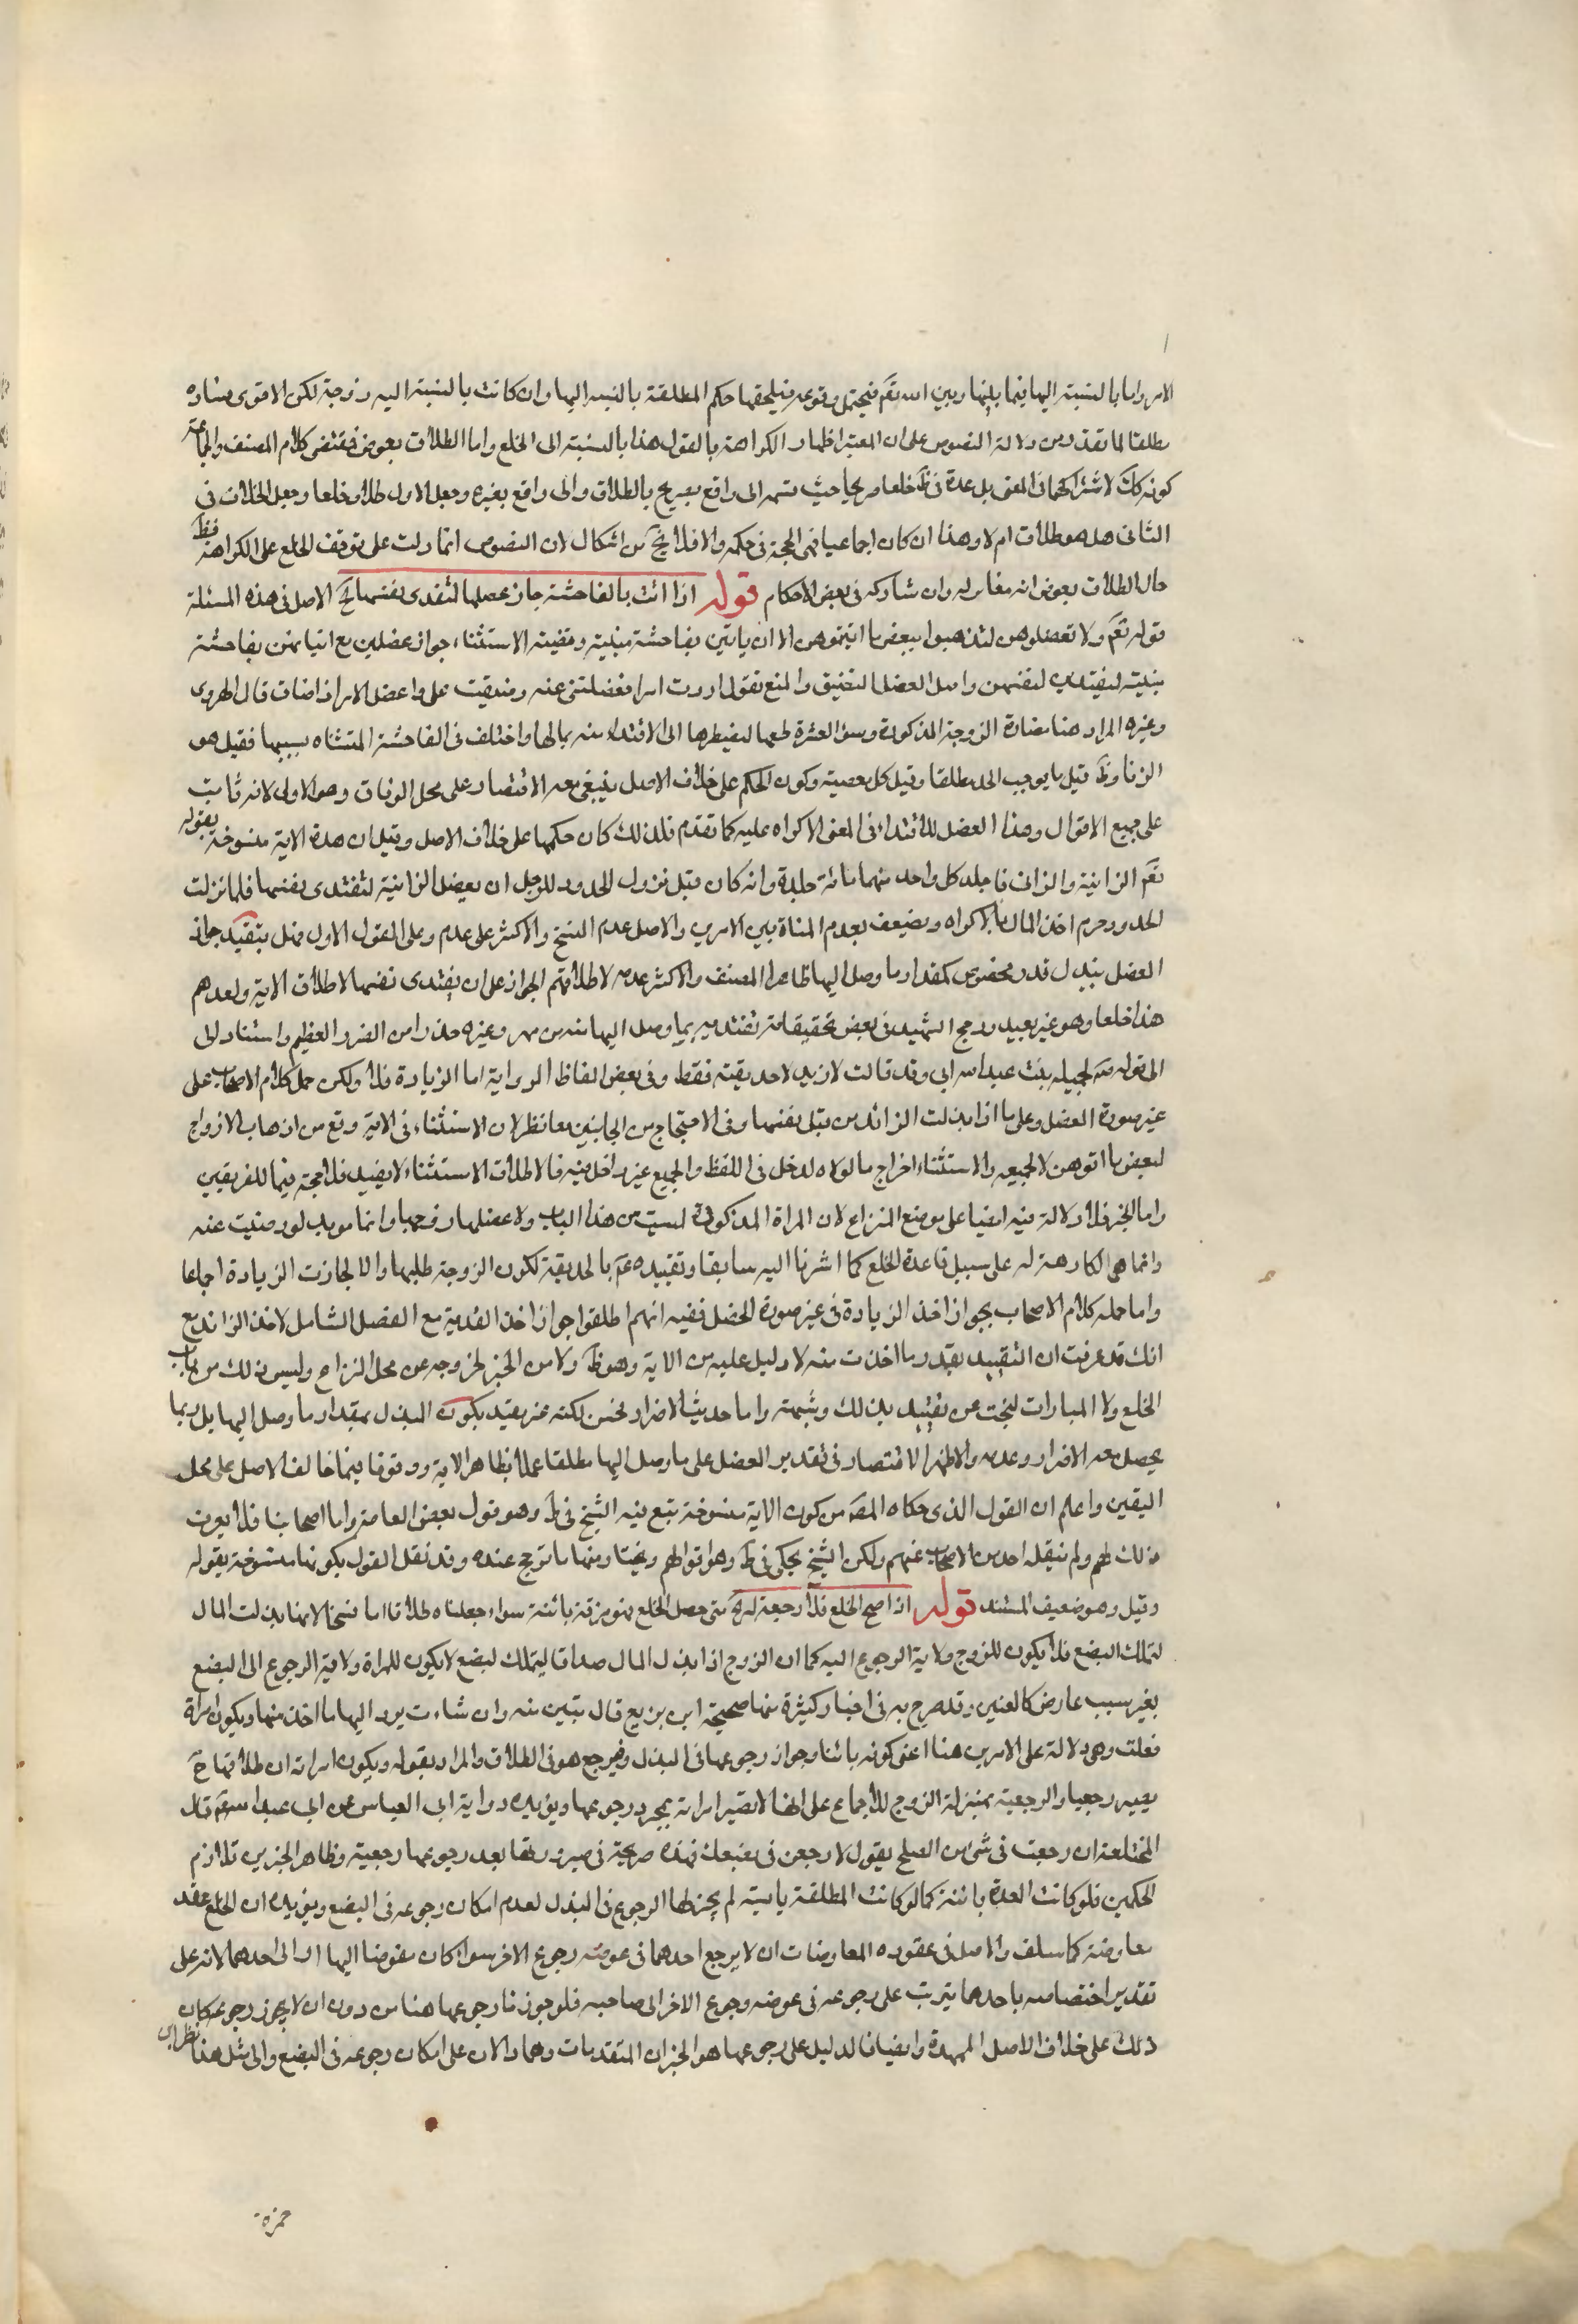 الامر واما بالنسبة اليها فيما بينها وبين الله تقم فيحتمل وقوعه فيلحقها حكم المطلقة بالنسبه اليها وان كانت بالنسبة اليه زوجة لكن الاقوى فساده
مطلقا لما تقدم من دلالة النصوص على ان المعتبر اظهار الكراهة بالقول هذا بالنسبة الى الخلع واما الطلاق بعوض فمقتضى كلام المصنف والجماعة
كونه كك لاشتراكهما فى المعنى بل عده فى ظ خلعا صريحا حيث قسمه الى واقع بصريح الطلاق والى واقع بغيره وجعل الاول طلاقا وخلعا وجعل الخلاف فى
الثانى هل هو طلاق ام لا وهذا ان كان اجماعيا فهى الحجة فى حكمه والا فلا يخ من اشكال لان النصوص انما دلت على توقف الخلع على الكراهة فظ
حال الطلاق بعوض انه مغاير له وان شاركه فى بعض الاحكام قوله اذا اتت بالفاحشة جاز عضلها لتفدى نفسها الخ الاصل فى هذه المسئلة
قوله تقم ولا تعضلوهن لتذهبوا ببعض ما اتيتموهن الا ان ياتين بفاحشة مبينة وقضية الاستثناء جواز عضلهن مع اتيانهن بفاحشة
مبينة ليفتدين انفسهن واصل العضل التضيق والمنع تقول اردت امرا فعضلتنى عنه ومنعتنى على واعضل الامر اذا ضاق قال الهروى
وغيره المراد هنا مضارة الزوجة المذكورة وسوء العشرة لها ليضطرها الى الافتداء منه بمالها واختلف فى الفاحشة المستثناه بسببها فقيل هو
الزنا وظ قيل ما يوجب الحد مطلقا وقيل كل معصية وكون الحكم على خلاف الاصل ينبغى معه الاقتصار على محل الوفاق وهو الاولى لانه ثابت
على جميع الاقوال وهذا العضل للافتداء فى المعنى الاكراه عليه كما تقدم فلذلك كان حكمها على خلاف الاصل وقيل ان هذه الاية منسوخة بقوله
تقم الزانية والزانى فاجلدوا كل واحد منهما مائة جلدة وانه كان قبل نزول الحدود للرجل ان يعضل الزانية لتفتدى نفسها فلما نزلت
الحدود حرم اخذ المال بالاكراه ويضعف بعدم المنافاة بين الامرين والاصل عدم النسخ والاكثر على عدمه وعلى القول الاول فهل يتقيد جواز
العضل ببذل قدر مخصوص كمقدار ما وصل اليها ظاهر المصنف والاكثر عدمه لاطلاقهم الجواز على ان يفتدى نفسها لاطلاق الاية ولعدهم
هذا خلعا وهو غير بعيد ورجح الشهيد فى بعض تحقيقاته تقييده بما وصل اليها منه من مهر وغيره حذرا من الضرر العظيم واستنادا
الى قوله ص لجميله بنت عبد الله ابى وقد قالت لازيده لا حديقته فقط وفى بعض الفاظ الرواية اما الزيادة فلا ولكن حمل كلام الاصحاب على
غير صورة العضل وعلى ما اذا بذلت الزائد من قبل نفسها وفى الاحتجاج من الجانبين معا نظر لان الاستثناء فى الاية وقع من اذهاب الازواج
لبعض ما اتوهن لا لجميعه والاستثناء اخراج ما لولاه لدخل فى اللفظ والجميع غير داخل فيه فالاطلاق الاستثناء لا يفيد فلا حجة فيها للفريقين
واما الخبر فلا دلالة فيه ايضا على موضع النزاع لان المراة المذكورة ليست من هذا الباب ولا عضلها زوجها وانما مويد لو رضيت عنه
وانما هى الكارهة له على سبيل قاعدة الخلع كما اشرنا اليه سابقا وتقييده عم بالحديقة لكون الزوجة طلبها والا لجازت الزيادة اجماعا
واما حمله كلام الاصحاب بجواز اخذ الزيادة فى غير صورة العضل ففيه انهم اطلقوا جواز اخذ الفدية مع العضل الشامل لاخذ الزائد مع
انك قد عرفت ان التقييد بقدر ما اخذت منه لا دليل عليه من الاية وهو ظ ولا من الخبر لخروجه عن محل النزاع وليس ذلك من باب
الخلع ولا المبارات ليبحث عن تقييد بذلك وشبهة واما حديث الاضرار لحسن لكنه غير مقيد بكون البذل بمقدار ما وصل اليها بل ربما
يحصل معه الاضرار وعدمه والاظهر الاقتصار فى تقدير العضل على ما وصل اليها مطلقا عملا بظاهر الاية ووقوفا فيما خالف الاصل على محل
اليقين واعلم ان القول الذى حكاه المص من كون الاية منسوخة تبع فيه الشيخ فى ط وهو قول بعض العامة واما اصحابنا فلا يعرف
ذلك لهم ولم ينقله احد من الاصحاب عنهم ولكن الشيخ يحكى فى ط وهو اقوالهم ويختار منها ما ترجح عنده وقد نقل القول بكونها منسوخة بقوله
وقيل وهو ضعيف المستند قوله اذا صح الخلع فلا رجعة له الخ متى حصل الخلع فهو فرقة بائنة سواء جعلناه طلاقا اما فسخا لانها بذلت المال
لتملك البضع فلا يكون للزوج ولاية الرجوع اليه كما ان الزوج اذا بذل المال صداقا ليتملك لبضع لا يكون للمراة ولاية الرجوع الى البضع
بغير سبب عارض كالعنين وقد صرح به فى اخبار كثيرة منها صحيحة ابن بزيع قال تبين منه وان شاءت يرد اليها ما اخذ منها ويكون امراة
فعلت وهى دلالة على الامرين هنا اعنى كونه بائنا وجواز رجوعها فى البذل وفيرجع هو فى الطلاق والمراد بقوله ويكون امراته ان طلاقها ح
يصير رجعيا والرجعية بمنزلة الزوج للاجماع على انها لا تصير امراته بمجرد رجوعها ويؤيده رواية ابى العباس عن ابى عبد الله عم قال
المختلعة ان رجعت فى شىء من الصلح يقول لارجعن فى بضعك فهذه صريحة فى صيرورتها بعد رجوعها رجعية وظاهر الخبرين تلازم
الحكمين فلو كانت العدة بائنة كما لو كانت المطلقة يائسة لم يجز لها الرجوع فى البذل لعدم امكان رجوعه فى البضع ويؤيده ان الخلع عقد
معاوضة كما سلف والاصل فى عقوده المعاوضات ان لا يرجع احدهما فى عوضه رجوع الاخر سواء كان مفوضا اليها ام الى احدهما لانه على
تقدير اختصاصه باحدهما يترتب على رجوعه فى عوضه وجوع الاخر الى صاحبه فلو جوزنا رجوعها هنا من دون ان لا يجوز رجوعه كان
ذلك على خلاف الاصل الممهدة وايضا فالدليل على رجوعها هو الخبران المتقدمات وهما دالان على امكان رجوعه فى البضع والى مثل هذا نظر ابن
حمزة